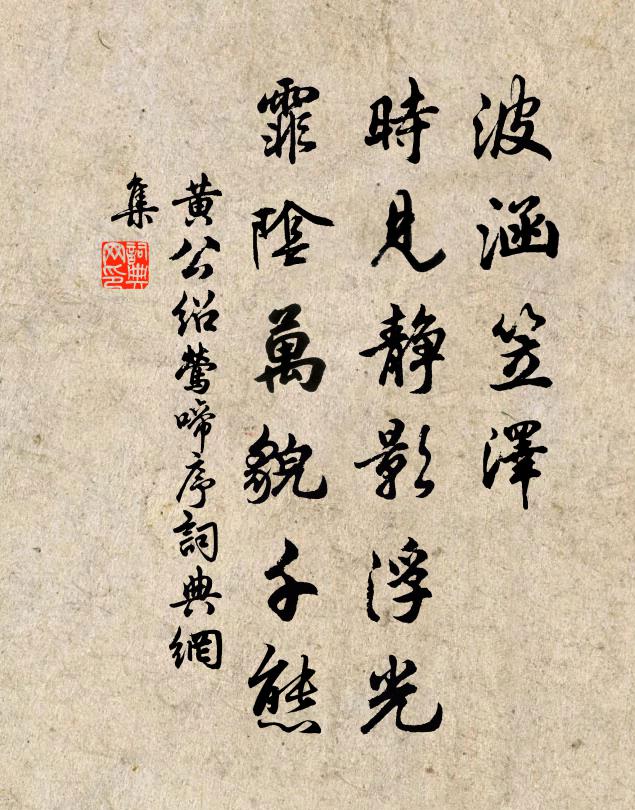 波涵笠澤
時見靜影浮光
霏陰萬貌千態
黃公紹鶯啼序詞典網
集
詞典网印